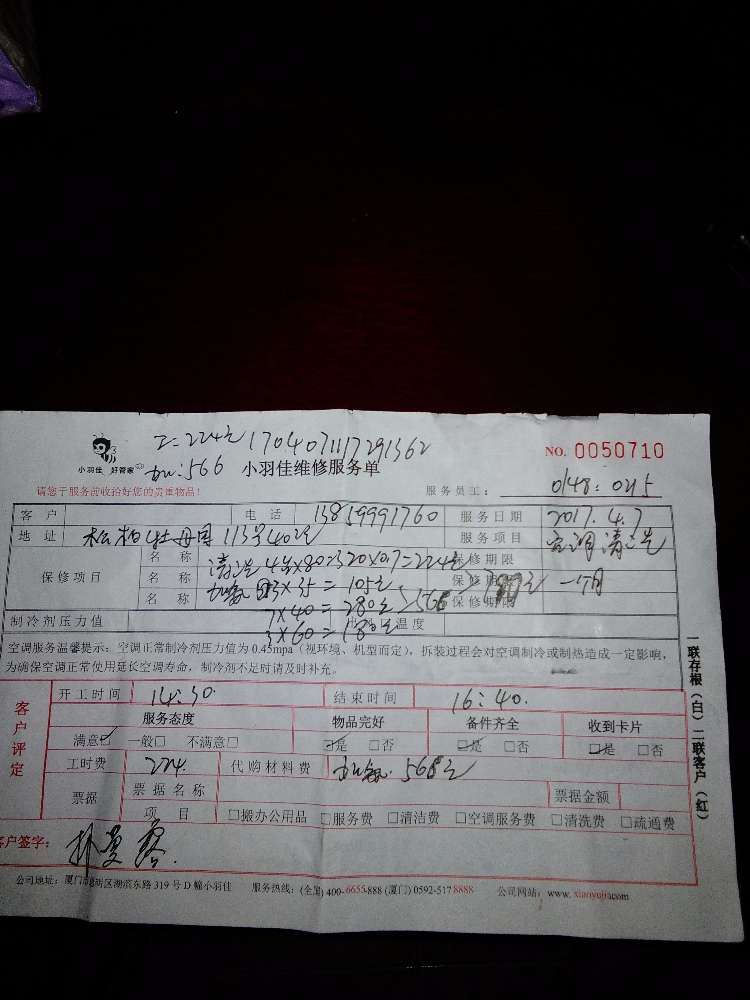 工=224元 1704071117291362
NO. 0050710
小羽佳 好管家
加:566 小羽佳维修服务单
请您于服务前收拾好您的贵重物品!
服务员工: 0148:0215
客户 电话 13859991760 服务日期 2017.4.7
地址 松柏牡丹园113号402 服务项目 空调清洗
保修项目
名称 清洗4台×80=320×0.7=224元 保修期限
名称 加氟 3×35=105元 保修期限 一个月
名称 7×40=280元 566 保修期限
制冷剂压力值 3×60=180元 温度
空调服务温馨提示:空调正常制冷剂压力值为0.45mpa(视环境、机型而定),拆装过程会对空调制冷或制热造成一定影响,
为确保空调正常使用延长空调寿命,制冷剂不足时请及时补充。
一联存根(白)二联客户(红)
客户评定
开工时间 14:30. 结束时间 16:40.
服务态度 物品完好 备件齐全 收到卡片
满意☑ 一般□ 不满意□ ☑是 □否 ☑是 □否 ☑是 □否
工时费 224. 代购材料费 加氟. 566元
票据 票据名称 票据金额
项目 □搬办公用品 □服务费 □清洁费 □空调服务费 □清洗费 □疏通费
客户签字:
公司地址:厦门市湖滨东路319号D幢小羽佳 服务热线:(全国)400-6655-888 (厦门) 0592-517 8888 公司网站:www.xiaoyujia.com